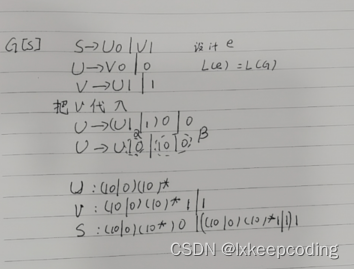 G[S] S→U0|V1 设计 e
U→V0|0 L(e)=L(G)
V→U1|1
把V代入
U→(U1|1)0|0
α
U→U10|10|0 β
U:(10|0)(10)*
V:(10|0)(10)*1|1
S:(10|0)(10*)0|((10|0)(10)*1|1)1
CSDN @lxkeepcoding